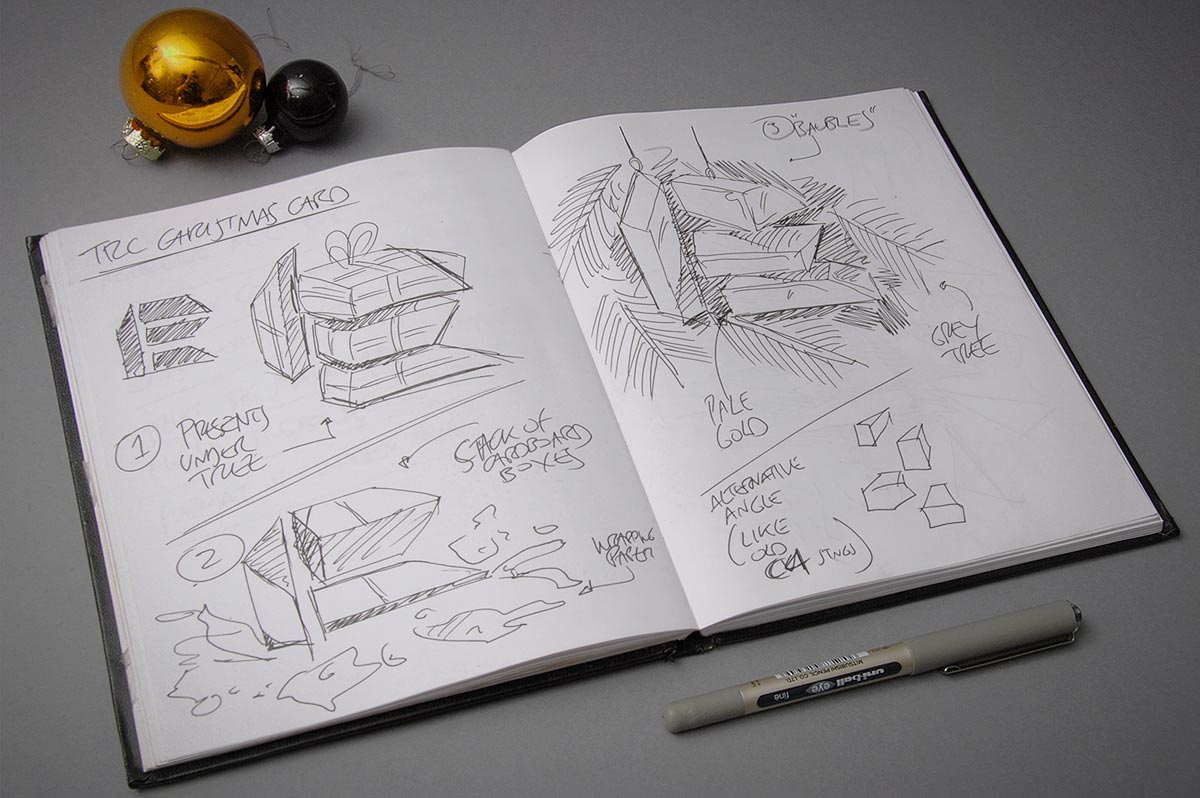 TRC CHRISTMAS CARD
1
PRESENTS
UNDER
TREE
STACK OF
CARDBOARD
BOXES
2
WRAPPING
PAPER
3 "BAUBLES"
GREY
TREE
PALE
GOLD
ALTERNATIVE
ANGLE
(LIKE
OLD
C4 STINGS)
uni-ball eye
fine
MITSUBISHI PENCIL CO. LTD.